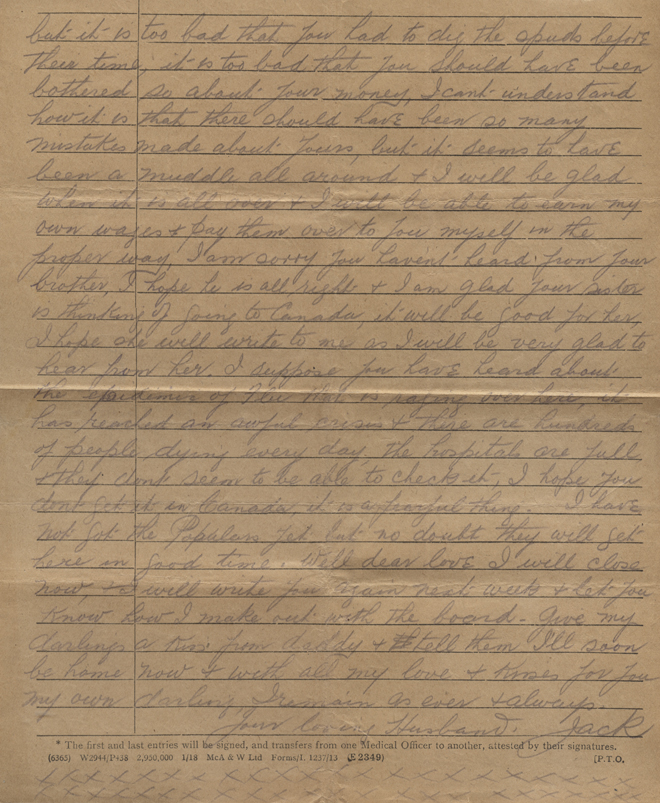 but it is too bad that you had to dig the spuds before
their time, it is too bad that you should have been
bothered so about your money, I cant understand
how it is that there should have been so many
mistakes made about yours, but it seems to have
been a muddle all around & I will be glad
when it is all over & I will be able to earn my
own wages & pay them over to you myself in the
proper way, I am sorry you havent heard from your
brother, I hope he is all right & I am glad your sister
is thinking of going to Canada, it will be good for her,
I hope she will write to me as I will be very glad to
hear from her. I suppose you have heard about
the epidemic of Flu that is raging over here, it
has reached an awful crisis & there are hundreds
of people dying every day, the hospitals are full
& they dont seem to be able to check it, I hope you
dont get it in Canada, it is a fearful thing. I have
not got the Populars yet but no doubt they will get
here in good time. Well dear love I will close
now, I will write you again next week & let you
know how I make out with the board - Give my
darlings a kiss from daddy & tell them I'll soon
be home now & with all my love & kisses for you
my own darling, I remain as ever & always.
Your loving Husband. Jack
* The first and last entries will be signed, and transfers from one Medical Officer to another, attested by their signatures.
(6365) W2944/P438 2,950,000 1/18 McA & W Ltd Forms/I. 1237/13 (E 2349) [P.T.O.
x x x x x x x x x x x x x x x x x x x x
x x x x x x x x x x x x x x x x x x x x